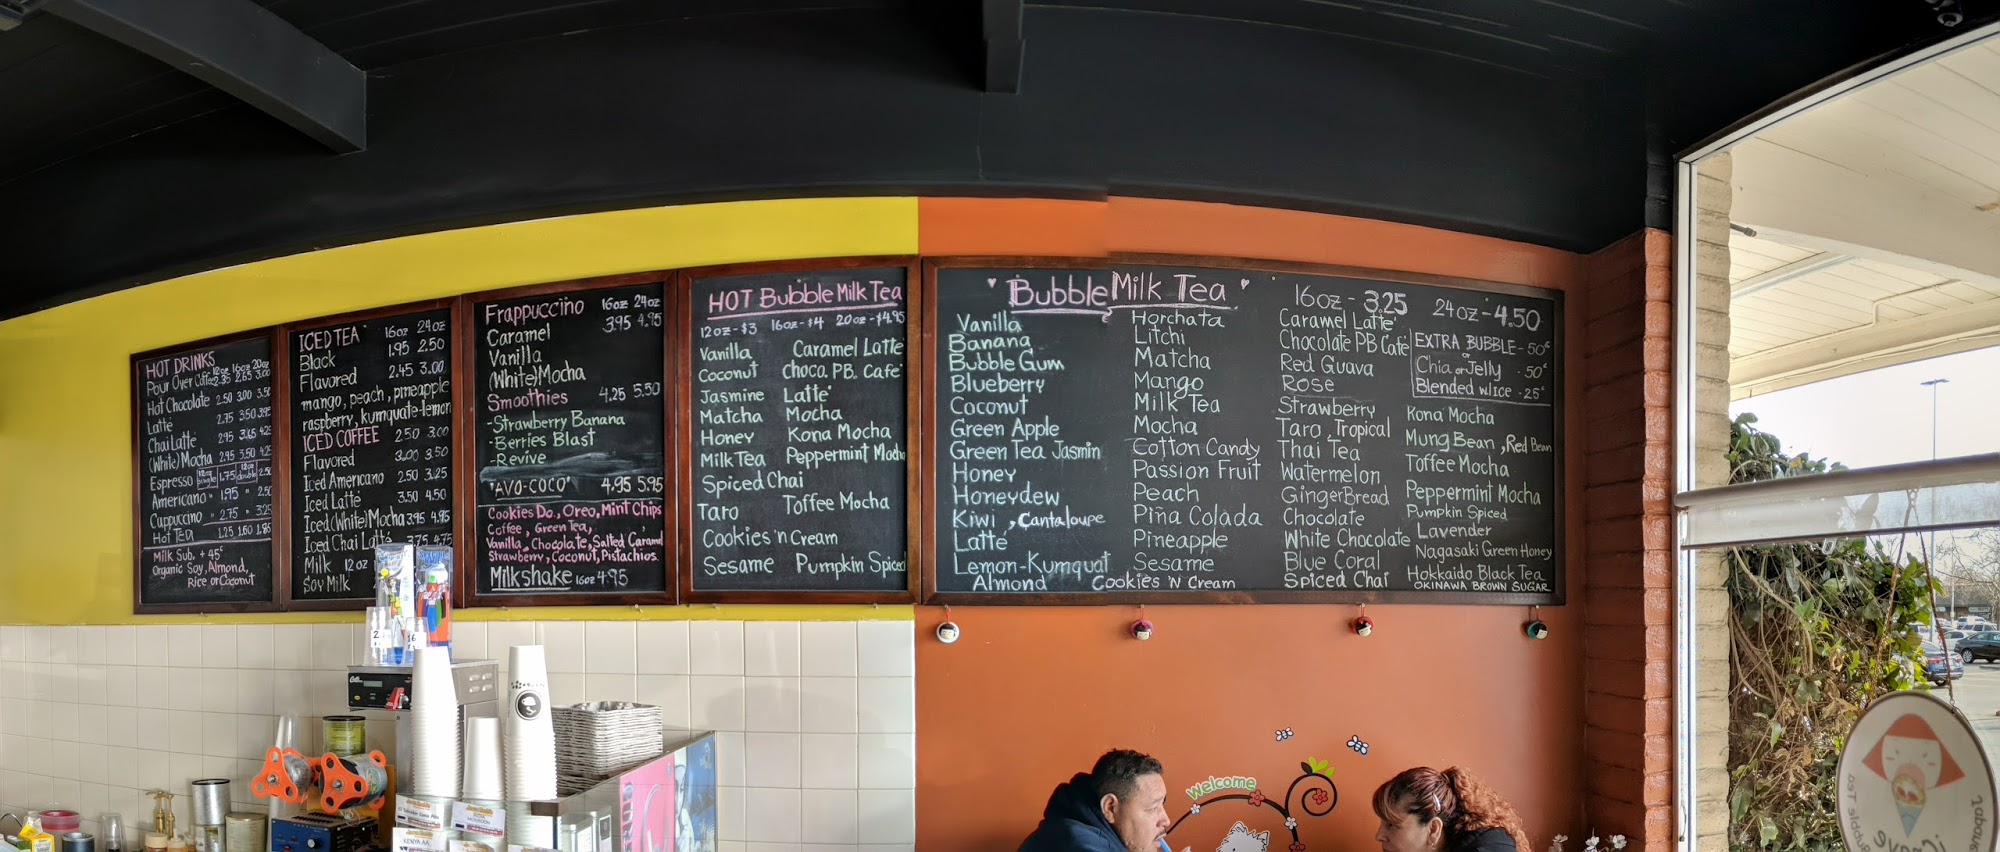 HOT DRINKS
12oz 16oz 20oz
Pour Over Coffee 2.35 2.65 3.00
Hot Chocolate 2.50 3.00 3.50
Latté 2.75 3.50 3.95
Chai Latte 2.95 3.65 4.25
(White) Mocha 2.95 3.50 4.25
Espresso 1.75
Americano " 1.95 " 2.50
Cappuccino " 2.75 " 3.25
Hot Tea 1.25 1.60 1.85
Milk Sub. + 45¢
Organic Soy, Almond,
Rice or Coconut
ICED TEA 16oz 24oz
Black 1.95 2.50
Flavored 2.45 3.00
mango, peach, pineapple
raspberry, kumquate-lemon
ICED COFFEE 2.50 3.00
Flavored 3.00 3.50
Iced Americano 2.50 3.25
Iced Latte 3.50 4.50
Iced (White) Mocha 3.95 4.95
Iced Chai Latte 3.75 4.75
Milk 12oz
Soy Milk
Frappuccino 16oz 24oz
3.95 4.95
Caramel
Vanilla
(White) Mocha
Smoothies 4.25 5.50
-Strawberry Banana
-Berries Blast
-Revive
"AVO-COCO" 4.95 5.95
Cookies Do., Oreo, Mint Chips
Coffee, Green Tea,
Vanilla, Chocolate, Salted Caramel
Strawberry, Coconut, Pistachios.
Milkshake 16oz 4.95
HOT Bubble Milk Tea
12oz-$3 16oz-$4 20oz-$4.95
Vanilla Caramel Latte
Coconut Choco. P.B. Cafe
Jasmine Latte
Matcha Mocha
Honey Kona Mocha
Milk Tea Peppermint Mocha
Spiced Chai
Taro Toffee Mocha
Cookies 'n Cream
Sesame Pumpkin Spiced
Bubble Milk Tea
16oz - 3.25 24oz - 4.50
Vanilla
Banana
Bubble Gum
Blueberry
Coconut
Green Apple
Green Tea Jasmin
Honey
Honeydew
Kiwi, Cantaloupe
Latte
Lemon-Kumquat
Almond
Horchata
Litchi
Matcha
Mango
Milk Tea
Mocha
Cotton Candy
Passion Fruit
Peach
Piña Colada
Pineapple
Sesame
Cookies 'N Cream
Caramel Latte
Chocolate PB Café
Red Guava
Rose
Strawberry
Taro, Tropical
Thai Tea
Watermelon
GingerBread
Chocolate
White Chocolate
Blue Coral
Spiced Chai
EXTRA BUBBLE - 50¢
or
Chia or Jelly - 50¢
Blended w/Ice - 25¢
Kona Mocha
Mung Bean, Red Bean
Toffee Mocha
Peppermint Mocha
Pumpkin Spiced
Lavender
Nagasaki Green Honey
Hokkaido Black Tea
OKINAWA BROWN SUGAR
Welcome
KENYA AA